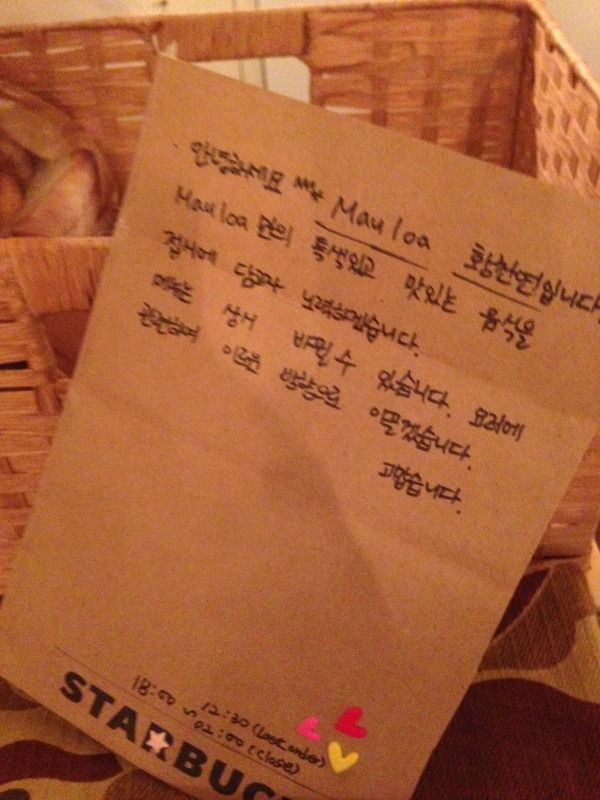 안녕하세요 Mauloa 황찬연입니다.
Mauloa 만의 특색있고 맛있는 음식을
접시에 담고자 노력하겠습니다.
메뉴는 상시 바뀔 수 있습니다. 요리에
관련하여 이로운 방향으로 이끌겠습니다.
고맙습니다.
18:00 ~ 12:30 (last order)
02:00 (close)
STARBUC